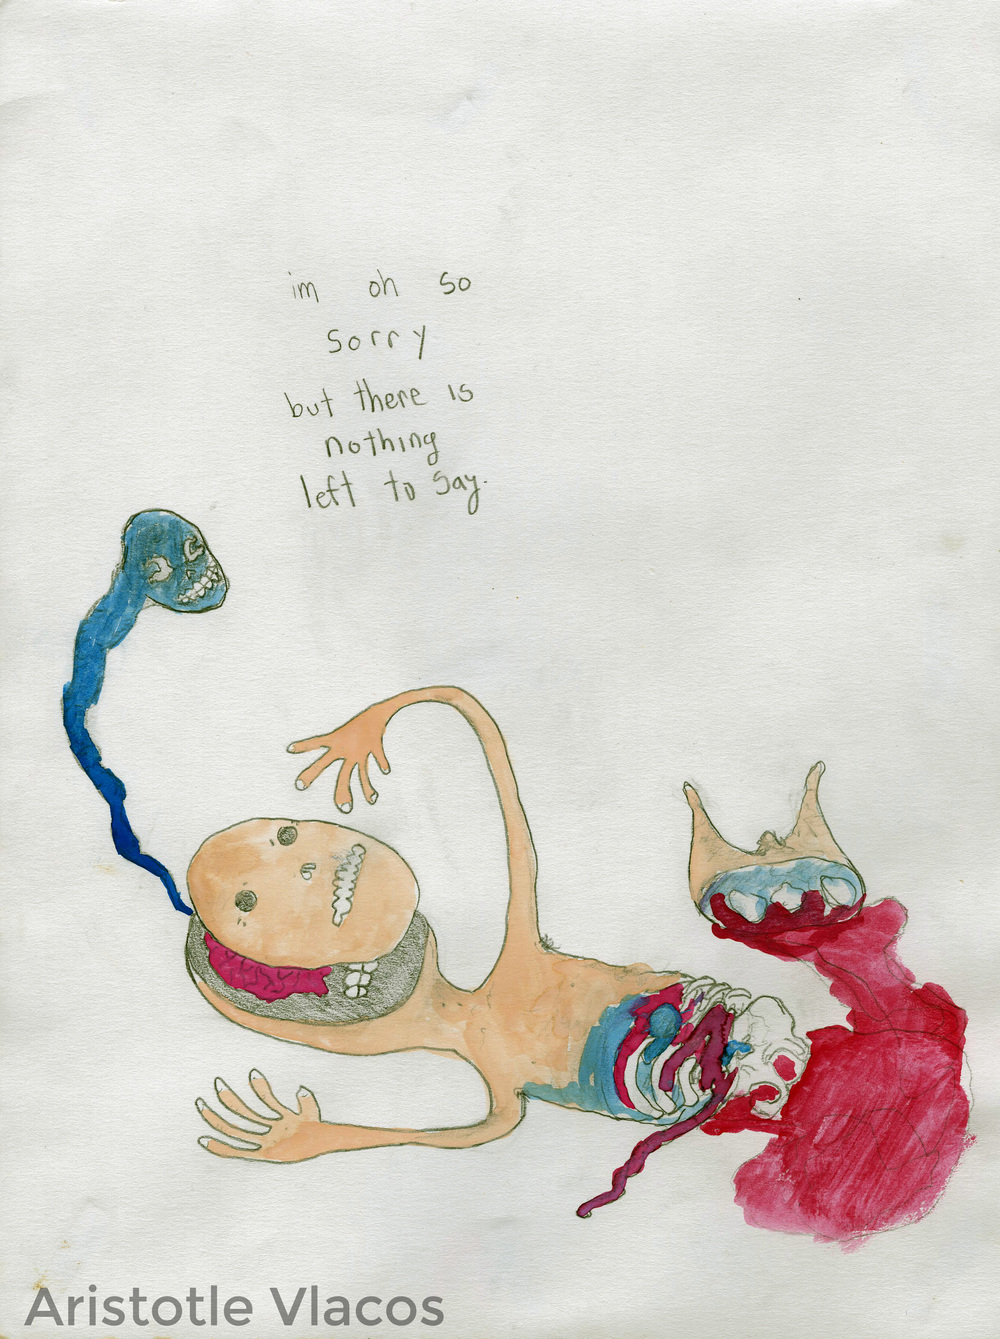 im oh so
sorry
but there is
nothing
left to say.
Aristotle Vlacos